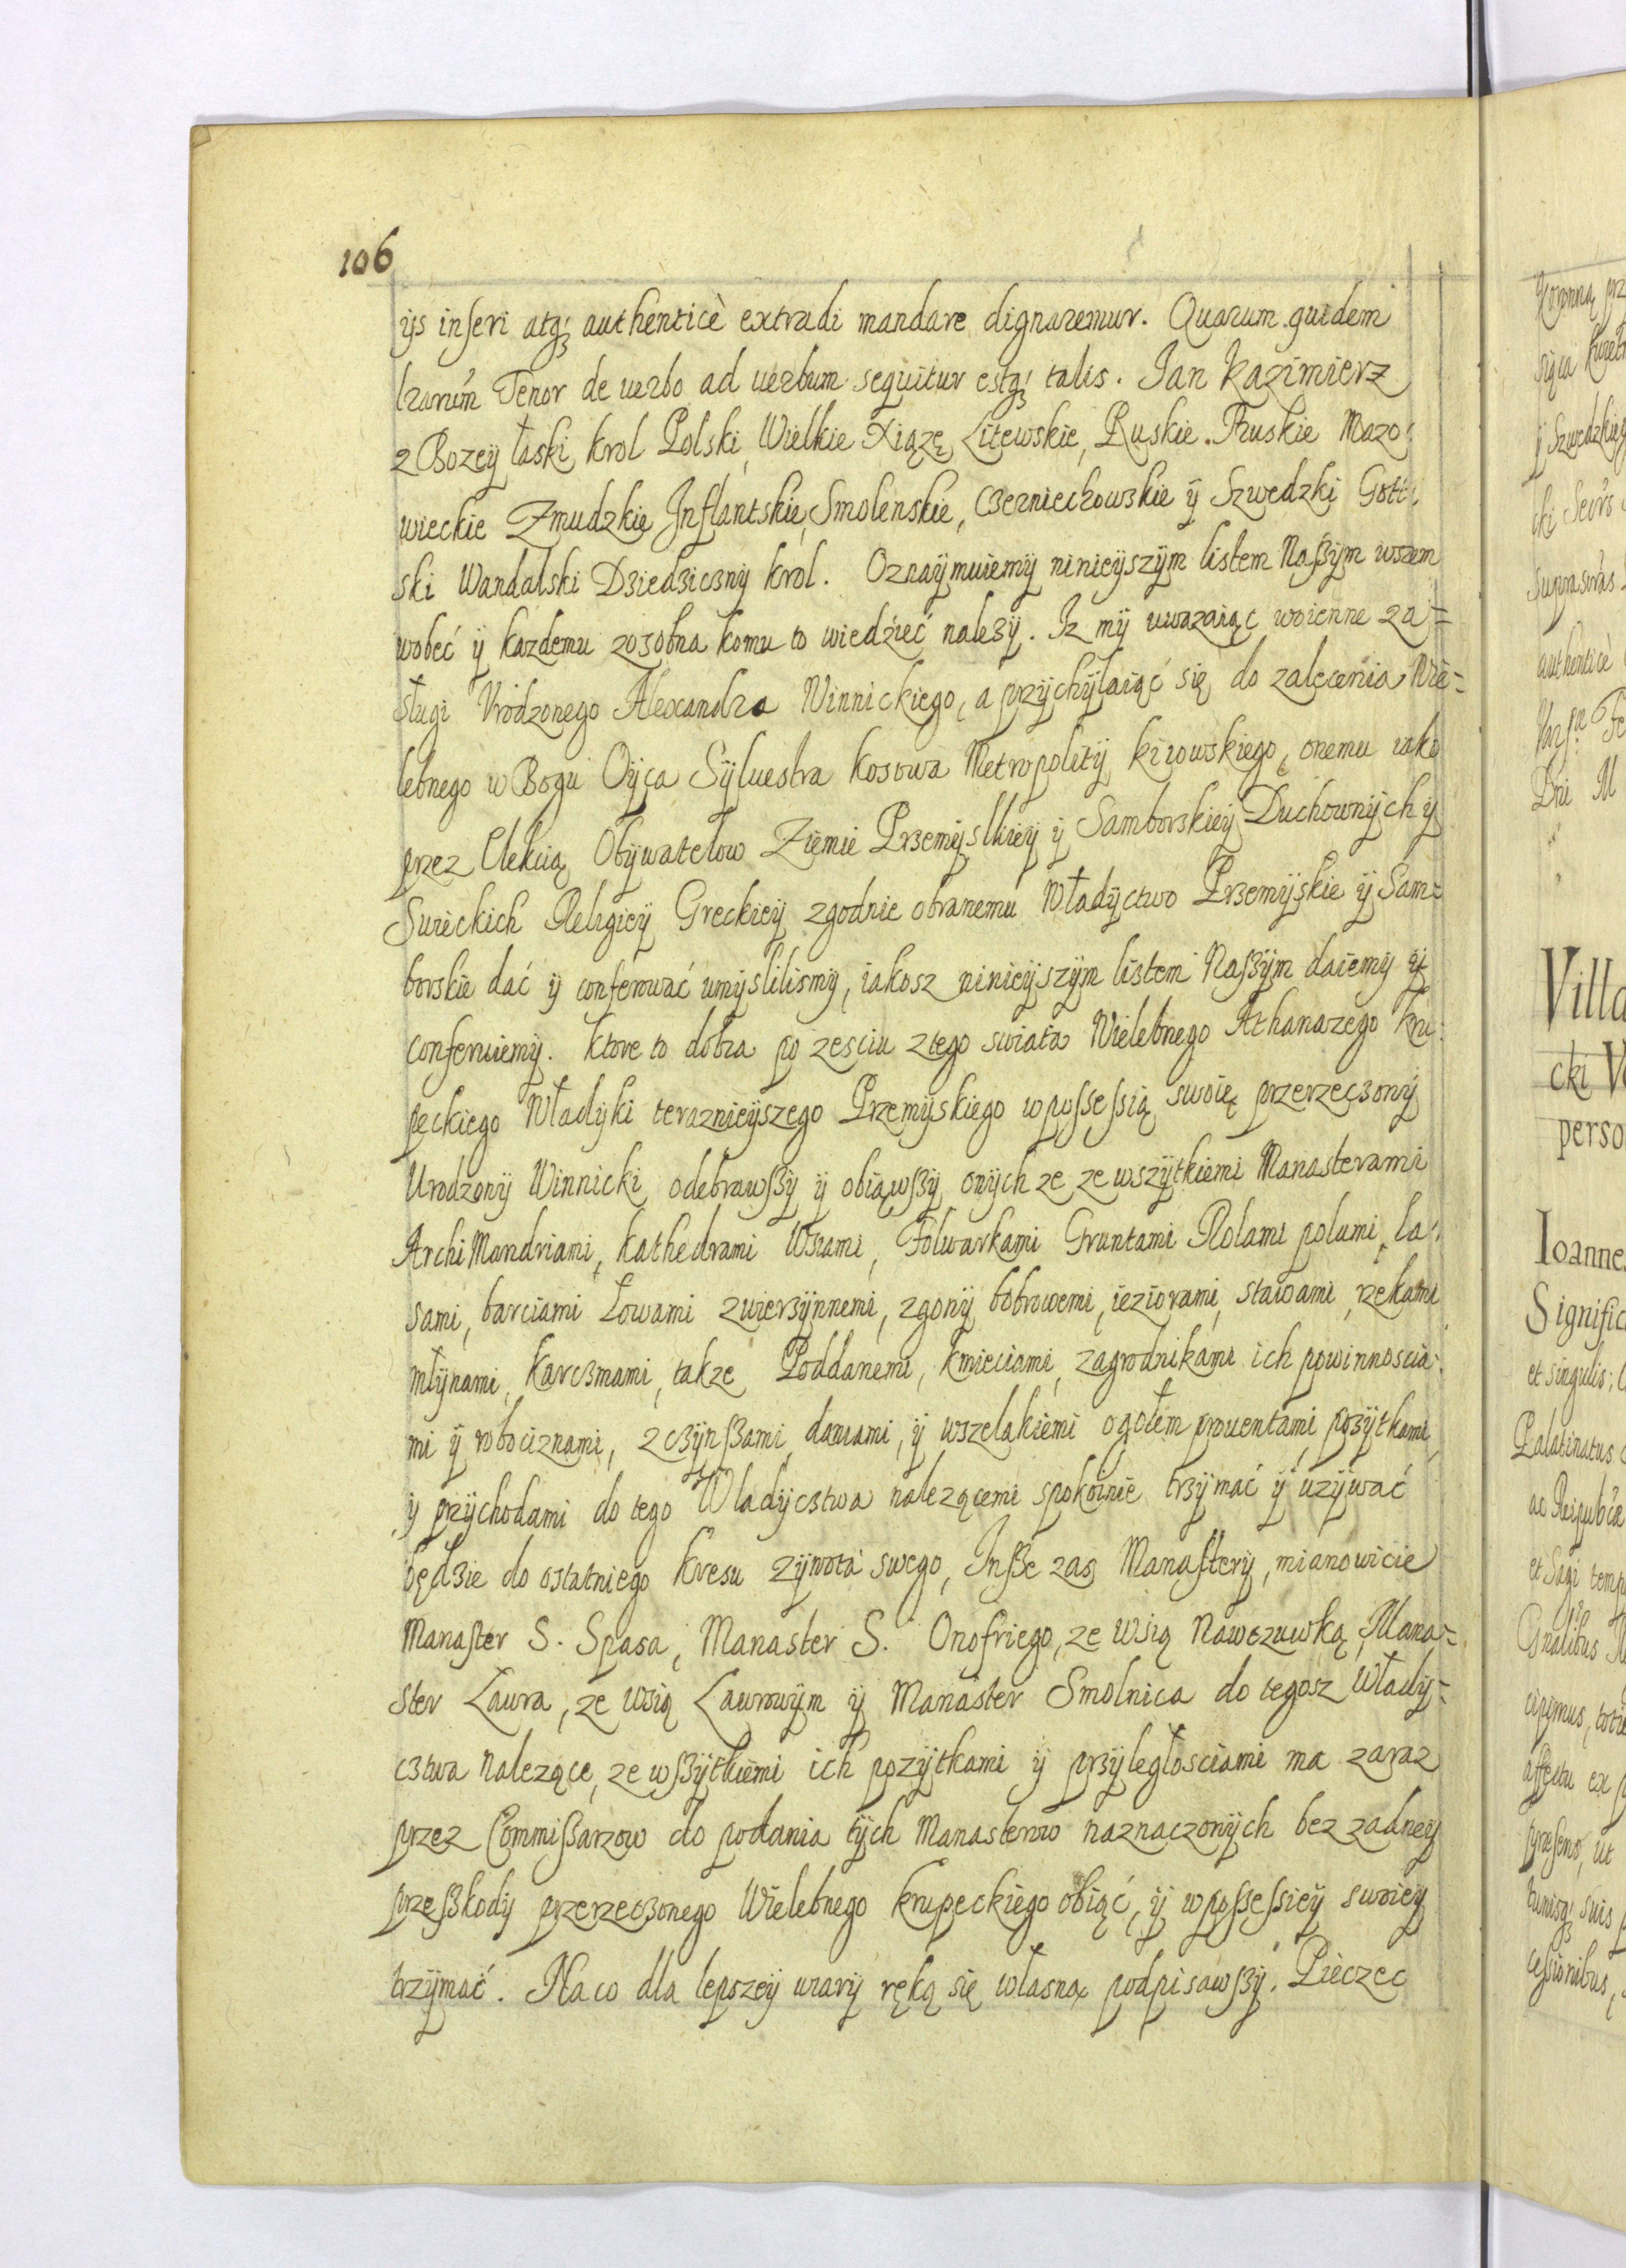 106
ijs inseri atq; authenticè extradi mandare dignaremur. Quarum quidem
lrarum Tenor de verbo ad verbum sequitur estq; talis. Jan Kazimierz
z Bozey łaski krol Polski, Wielkie Xiązę Litewskie, Ruskie. Pruskie Mazo:
wieckie Zmudzkie Inflantskie, Smolenskie, Czerniechowskie ÿ Szwedzki Gott:
ski Wandalski Dziedziczny krol. Oznaÿmuiemÿ ninieÿszÿm listem Naszÿm wszem
wobeć ÿ kazdemu zosobna komu to wiedźieć nalezÿ. Iz mÿ uwazaiąc woienne za=
sługi Urodzonego Alexandra Winnickiego, a przÿchÿlaiąć się do zalecenia Wie=
lebnego w Bogu Oÿca Sÿlvestra Kosowa Metropolitÿ kiiowskiego, onemu iako
przez Elekcią Obÿwatelow Ziemie Przemÿslkieÿ ÿ Samborskieÿ Duchownÿch ÿ
Swieckich Religieÿ Greckieÿ zgodnie obranemu Władÿctwo Przemÿskie ÿ Sam=
borskie dać ÿ conferować umÿslilismÿ, iakosz ninieÿszÿm listem Naszÿm daiemÿ ÿ
conferuiemÿ. Ktore to dobra po zesciu ztego swiata Wielebnego Athanazego Kru:
peckiego Władÿki teraznieÿszego Przemÿskiego w possessią swoię przerzeczonÿ
Urodzonÿ Winnicki odebrawszÿ ÿ obiąwszÿ onÿch ze ze wszÿtkiemi Manasterami
Archi Mandriami, Kathedrami Wsiami, Folwarkami Gruntami Rolami polami, la:
sami, barciami Łowami zwierzÿnnemi, zgonÿ bobrowemi, ieziorami, stawami, rzekami
młÿnami, Karczmami, takze Poddanemi, kmieciami, zagrodnikami ich powinnoscia:
mi ÿ robociznami, z czÿnszami, daniami, ÿ wszelakiemi ogołem prouentami, pozÿtkami,
ÿ przÿchodami do tego Wladÿcztwa nalezącemi spokoinie trzÿmać ÿ uzÿwać
będzie do ostatniego kresu zÿwota swego, Insze zas Manasterÿ, mianowicie
Manaster S. Spasa, Manaster S. Onofriego, ze wsią Nawczuwką, Mana=
ster Ławra, ze wsią Ławrowÿm ÿ Manaster Smolnica do tegosz Władÿ=
cztwa nalezące, ze wszÿtkiemi ich pozÿtkami ÿ przÿległosciami ma zaraz
przez Commissarzow do podania tÿch Manasterow naznaczonÿch bez zadneÿ
przeszkodÿ przerzeczonego Wielebnego Krupeckiego obiąć, ÿ w possessieÿ swoieÿ
trzÿmać. Na co dla lepszeÿ wiarÿ ręką się własną podpisawszÿ. Pieczęc
Villa
cki
perso
Ioannes
et singulis;
Palatinatus